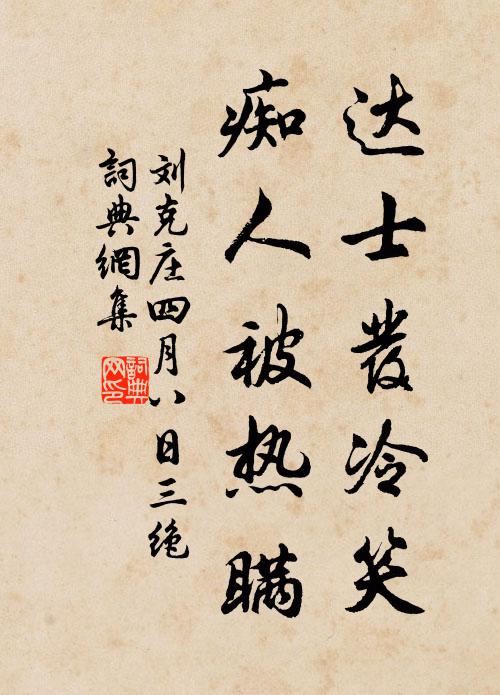 达士发冷笑
痴人被热瞒
刘克庄四月八日三绝
詞典網集
詞典网印